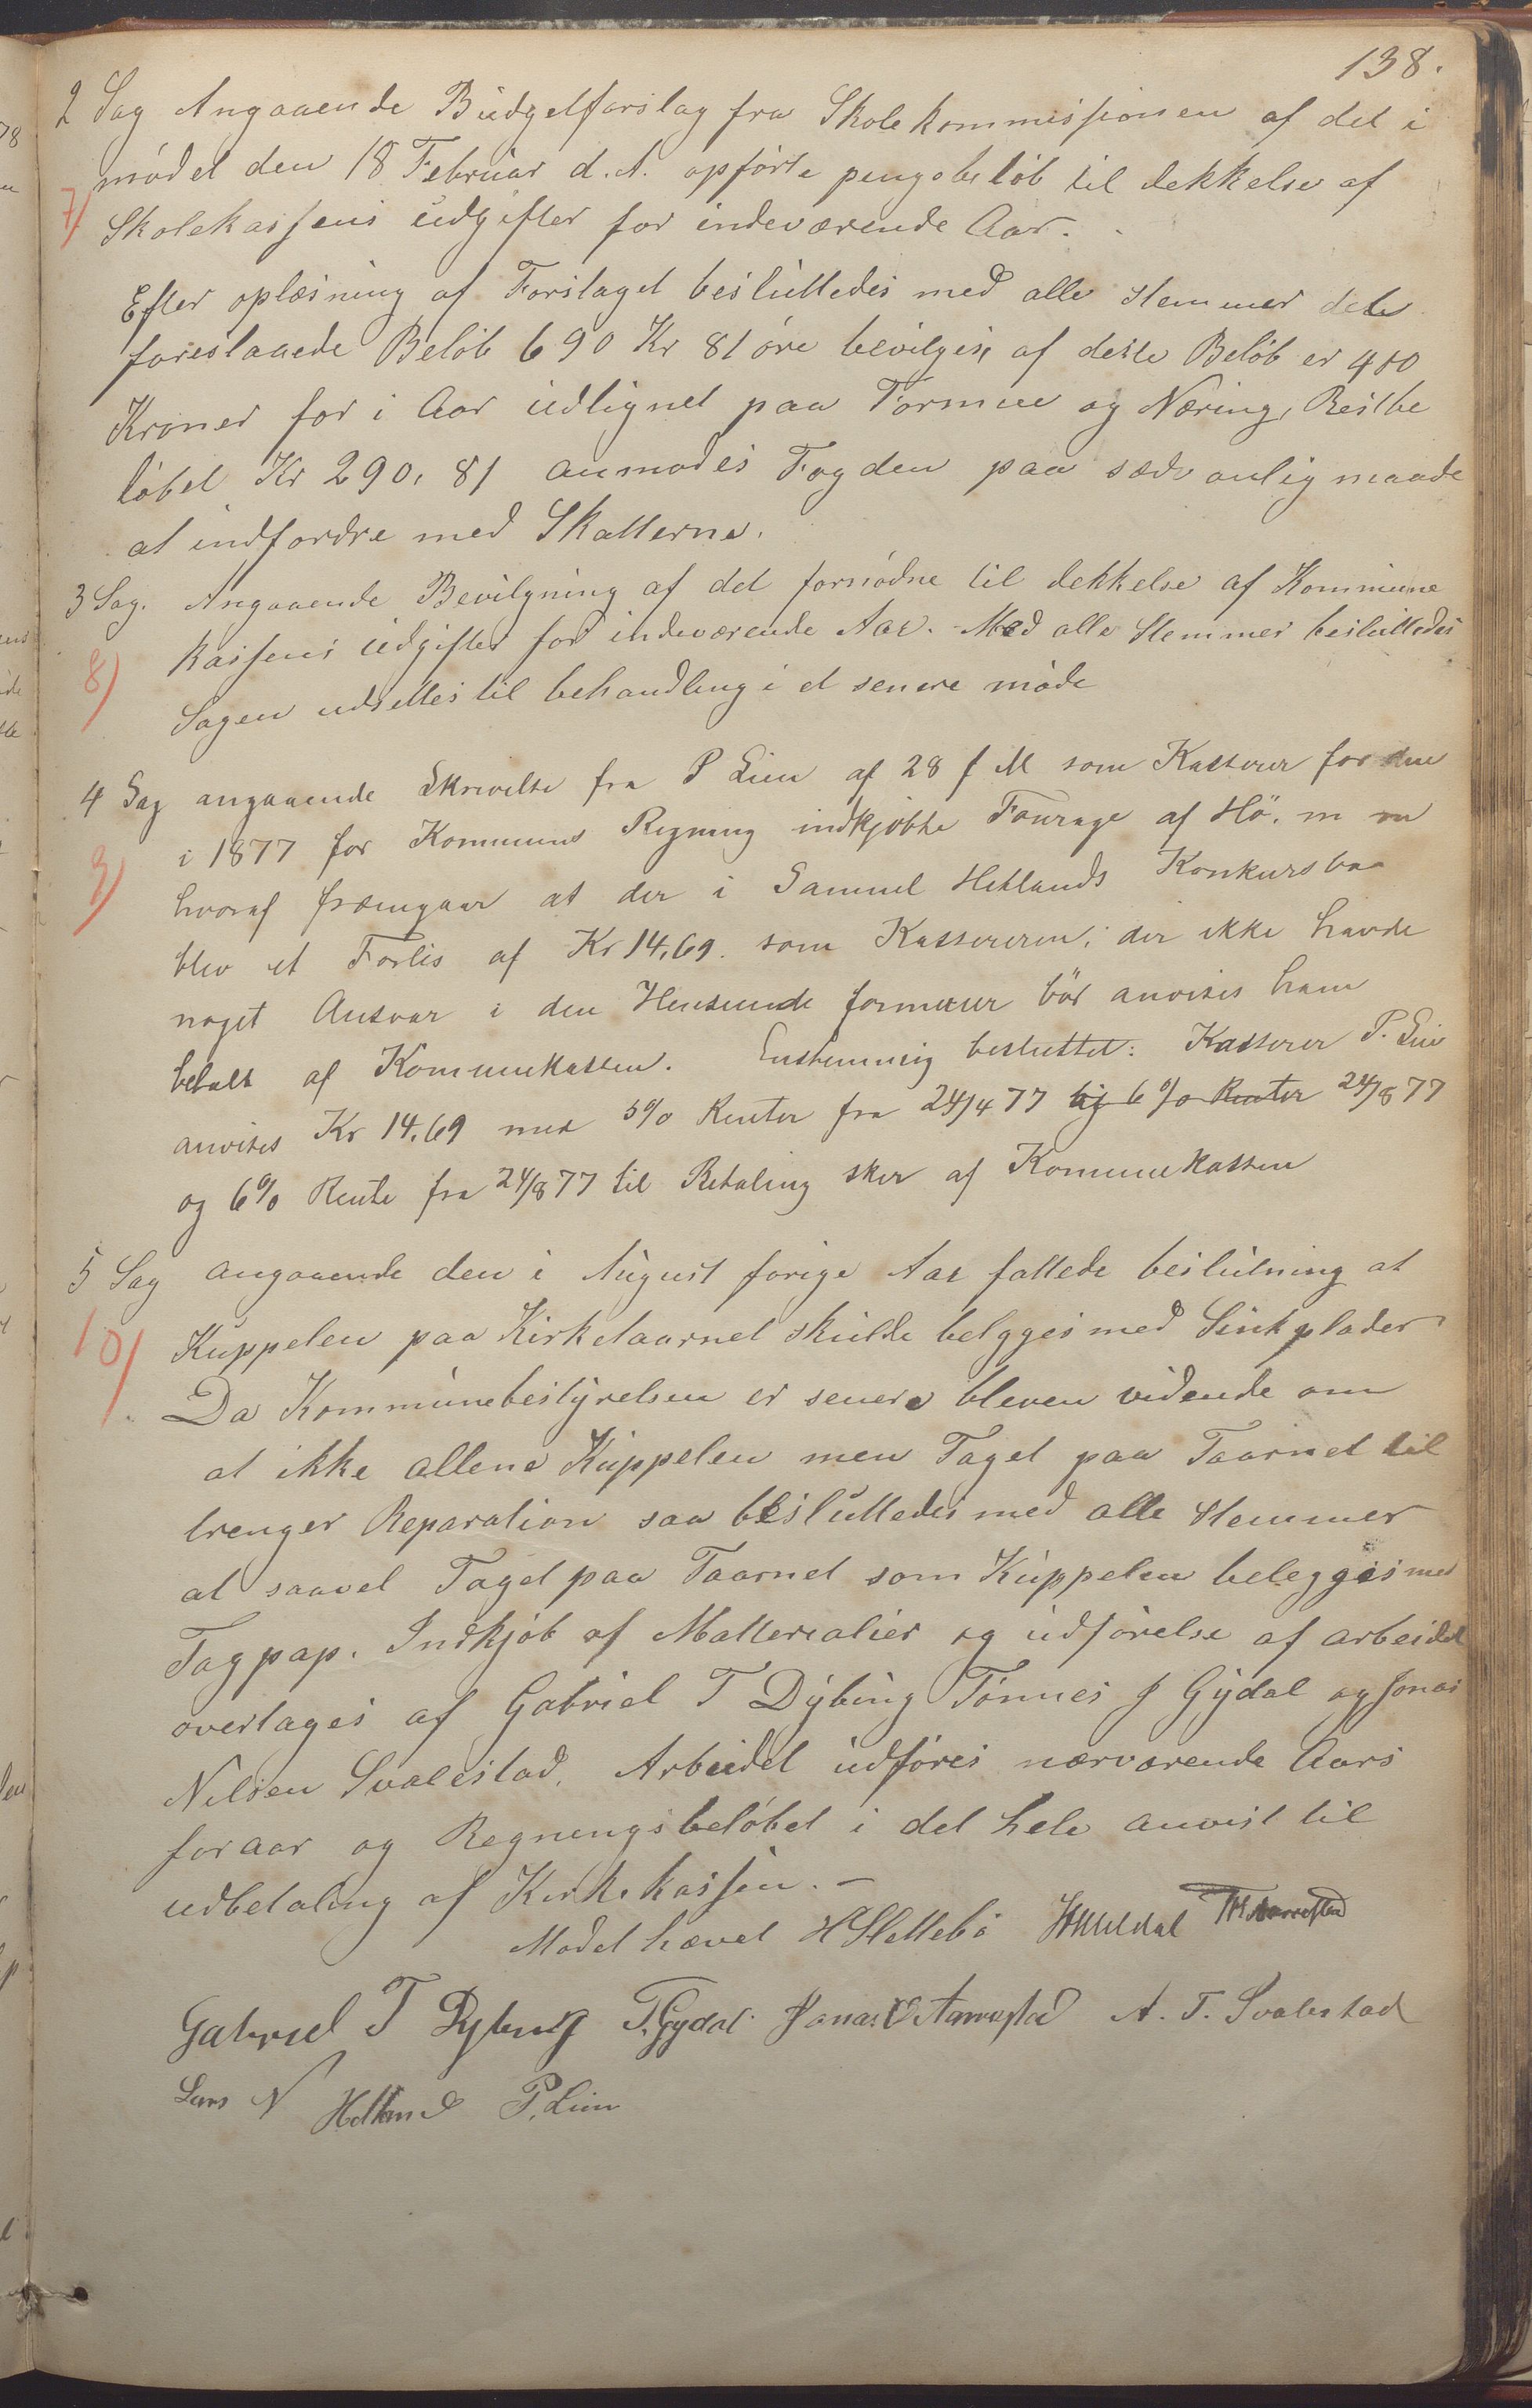 138.
2 Sag Angaaende Budgetforslag fra Skolekommissionen af det i
mødet den 18 Februar d. A. opførte pengebeløb til dekkelse af
7)
Skolekassens udgifter for indeværende Aar.
Efter oplæsning af Forslaget besluttedes med alle stemmer det
foreslaaede Beløb 690 Kr 81 øre bevilges, af dette Beløb er 400
Kroner for i Aar udlignet paa Formue og Næring, Restbe
løbet Kr 290,81 anmodes Fogden paa sædvanlig maade
at indfordre med Skatterne.
3 Sag. Angaaende Bevilgning af det fornødne til dekkelse af Kommune
kassens udgifter for indeværende Aar. Med alle stemmer besluttedes
8)
Sagen udsettes til behandling i et senere møde
4 Sag angaaende Skrivelse fra P Lien af 28 f M som Kasserer for den
i 1877 for Kommuns Regning indkjøbte Fourage af Hö. m m
9)
hvoraf fræmgaar at der i Samuel Hetlands Konkursbo
blev et Forlis af Kr 14,69. som Kassereren, der ikke havde
noget Ansvar i den Henseende formener bör anvises ham
betalt af Kommunekassen. Enstemmig besluttet: Kasserer P. Lien
anvises Kr 14.69 med 5% Renter fra 24/4 77 og 6% Renter 24/8 77
og 6% Rente fra 24/8 77 til Betaling sker af Kommunekassen
5 Sag angaaende den i August forige Aar fattede beslutning at
10)
Kuppelen paa Kirketaarnet skulde belegges med Sinkplader
Da Kommunebestyrelsen er senere bleven vidende om
at ikke allene Kuppelen men Taget paa Taarnet til
trenger Reparation saa besluttedes med alle stemmer
at saavel Taget paa Taarnet som Kuppelen belegges med
Tagpap. Indkjøb af Matterialier og udførelse af arbeidet
overtages af Gabriel T Dybing Tønnes J Gydal og Jonas
Nilsen Svalestad. Arbeidet udføres nærværende Aars
foraar og Regningsbeløbet i det hele anvist til
udbetaling af Kirkekassen. -
Mødet hævet H Slettebø Mydal Aarrestad
Gabriel T Dybing T. Gydal. Jonas O Aarrestad A. T. Svalestad
Lars N Hetland P. Lien